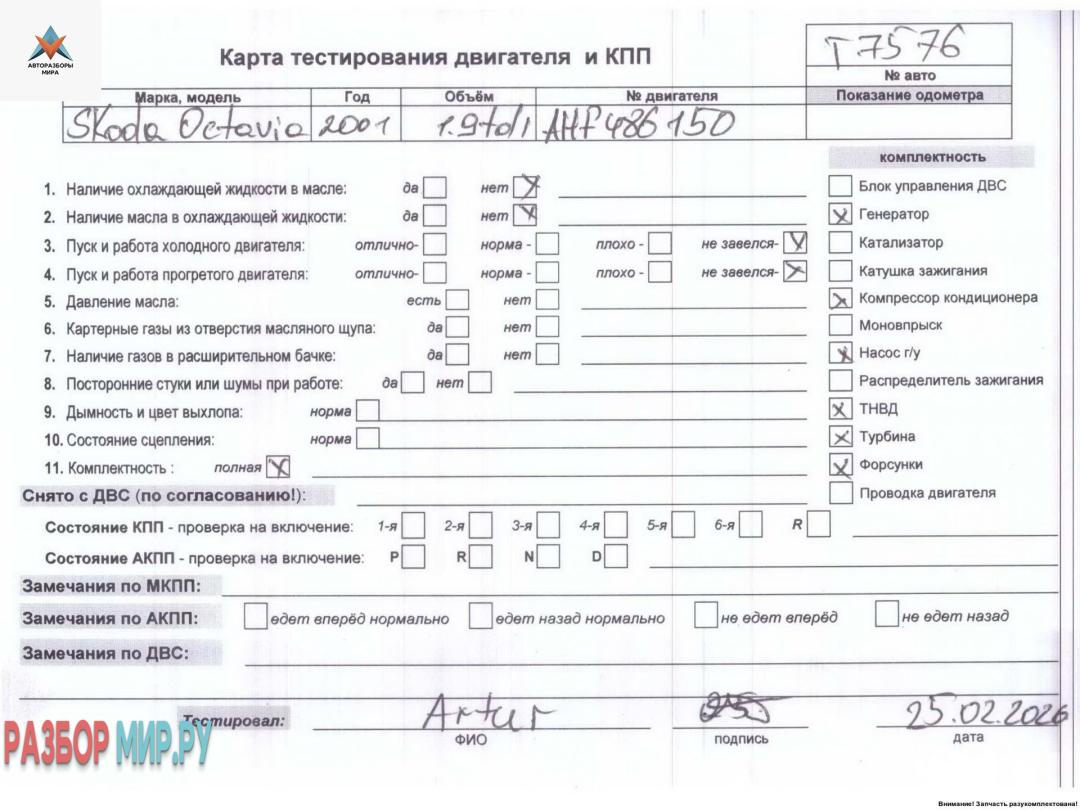 АВТОРАЗБОРЫ
МИРА
Карта тестирования двигателя и КПП
T7576
№ авто
Марка, модель Год Объём № двигателя Показание одометра
Skoda Octavia 2001 1.9tdi AHF486150
комплектность
1. Наличие охлаждающей жидкости в масле: да нет X Блок управления ДВС
2. Наличие масла в охлаждающей жидкости: да нет X X Генератор
3. Пуск и работа холодного двигателя: отлично- норма - плохо - не завелся- X Катализатор
4. Пуск и работа прогретого двигателя: отлично- норма - плохо - не завелся- X Катушка зажигания
5. Давление масла: есть нет X Компрессор кондиционера
6. Картерные газы из отверстия масляного щупа: да нет Моновпрыск
7. Наличие газов в расширительном бачке: да нет X Насос г/у
8. Посторонние стуки или шумы при работе: да нет Распределитель зажигания
9. Дымность и цвет выхлопа: норма X ТНВД
10. Состояние сцепления: норма X Турбина
11. Комплектность : полная X X Форсунки
Снято с ДВС (по согласованию!): Проводка двигателя
Состояние КПП - проверка на включение: 1-я 2-я 3-я 4-я 5-я 6-я R
Состояние АКПП - проверка на включение: P R N D
Замечания по МКПП:
Замечания по АКПП: едет вперёд нормально едет назад нормально не едет вперёд не едет назад
Замечания по ДВС:
Тестировал: Artur 25.02.2026
ФИО подпись дата
РАЗБОРМИР.РУ
Внимание! Запчасть разукомплектована!